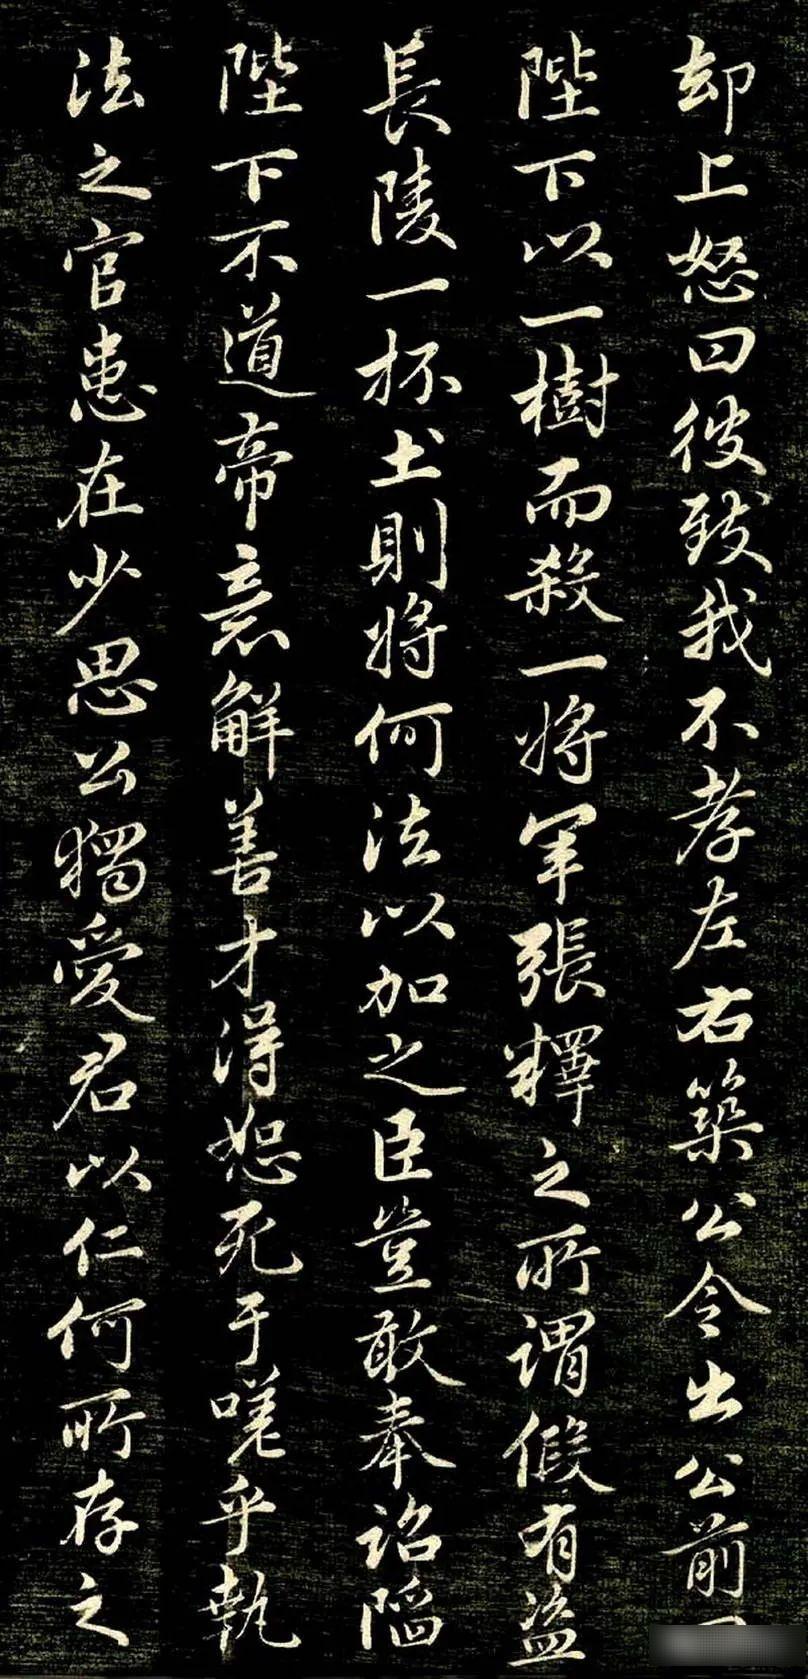 却上怒曰彼致我不孝左右築公令出公前
陛下以一樹而殺一將軍張釋之所謂假有盜
長陵一抔土則將何法以加之臣豈敢奉詔陷
陛下不道帝意解善才得恕死于嗟乎執
法之官患在少思公獨愛君以仁何所存之